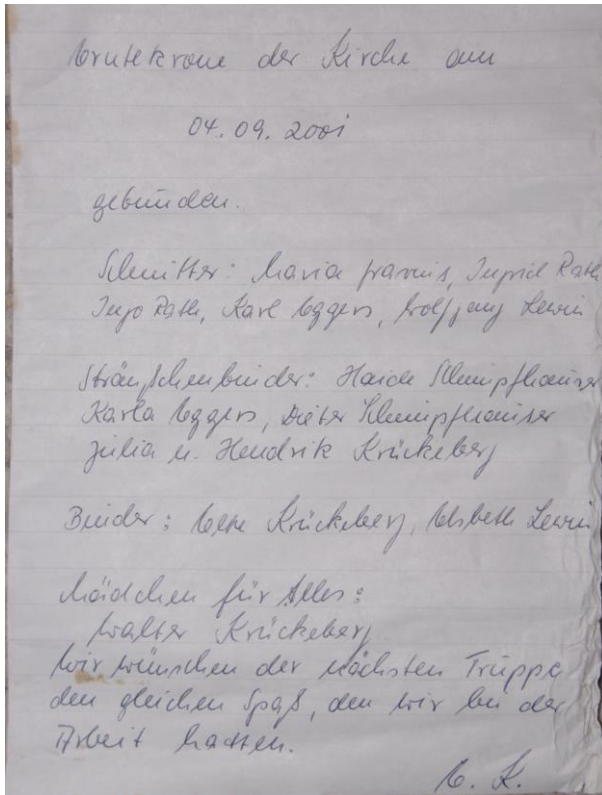 Erntekrone der Kirche am
04.09.2001
gebunden.
Schnitter: Maria Francis, Ingrid Rath
Ingo Rath, Karl Eggers, Wolfgang Lewin
Sträußchenbinder: Haide Schimpfhauser
Karla Eggers, Dieter Schimpfhauser
Julia u. Hendrik Krückeberg
Binder: Elke Krückeberg, Elsbeth Lewin
Mädchen für Alles:
Walter Krückeberg
Wir wünschen der nächsten Truppe
den gleichen Spaß, den wir bei der
Arbeit hatten.
E. K.